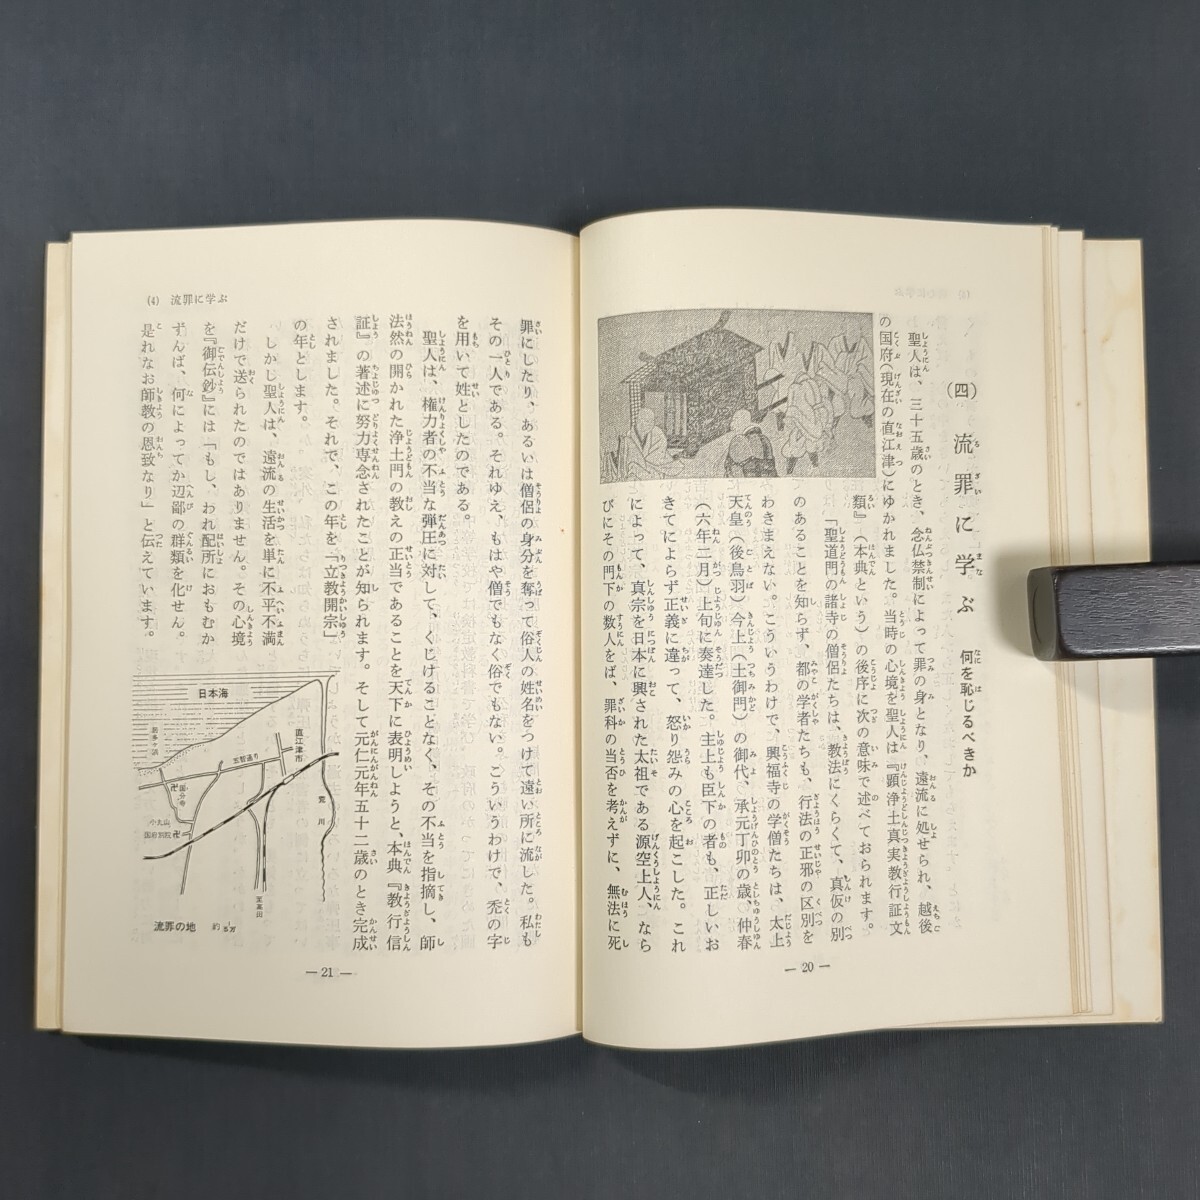 (四) 流罪に学ぶ 何を恥じるべきか
聖人は、三十五歳のとき、念仏禁制によって罪の身となり、遠流に処せられ、越後
の国府(現在の直江津)にゆかれました。当時の心境を聖人は『顕浄土真実教行証文
類』(本典という)の後序に次の意味で述べておられます。
「聖道門の諸寺の僧侶たちは、教法にくらくて、真仮の別
のあることを知らず、都の学者たちも、行法の正邪の区別を
わきまえない。こういうわけで、興福寺の学僧たちは、太上
天皇(後鳥羽)今上(土御門)の御代、承元丁卯の歳、仲春
(六年二月)上旬に奏達した。主上も臣下の者も、正しいお
きてによらず正義に違って、怒り怨みの心を起こした。これ
によって、真宗を日本に興された太祖である源空上人、なら
びにその門下の数人をば、罪科の当否を考えずに、無法に死
— 20 —
(4) 流罪に学ぶ
罪にしたり、あるいは僧侶の身分を奪って俗人の姓名をつけて遠い所に流した。私も
その一人である。それゆえ、もはや僧でもなく俗でもない。こういうわけで、禿の字
を用いて姓としたのである。
聖人は、権力者の不当な弾圧に対して、くじけることなく、その不当を指摘し、師
法然の開かれた浄土門の教えの正当であることを天下に表明しようと、本典『教行信
証』の著述に努力専念されたことが知られます。そして元仁元年五十二歳のとき完成
されました。それで、この年を「立教開宗」
の年とします。
しかし聖人は、遠流の生活を単に不平不満
だけで送られたのではありません。その心境
を『御伝鈔』には「もし、われ配所におもむか
ずんば、何によってか辺鄙の群類を化せん。
是れなお師教の恩致なり」と伝えています。
日本海
居多ヶ浜
五智通り
直江津市
荒川
卍国分寺
小丸山
国府別院卍
至高田
流罪の地
— 21 —